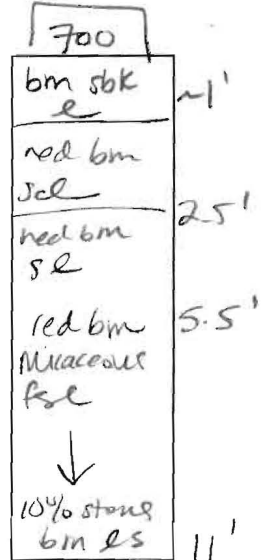 700
bm sbk ~1'
l
red bm
scl 2.5'
red bm
sl
red bm 5.5'
Micaceous
fsl
10% stone
bm ls 11'